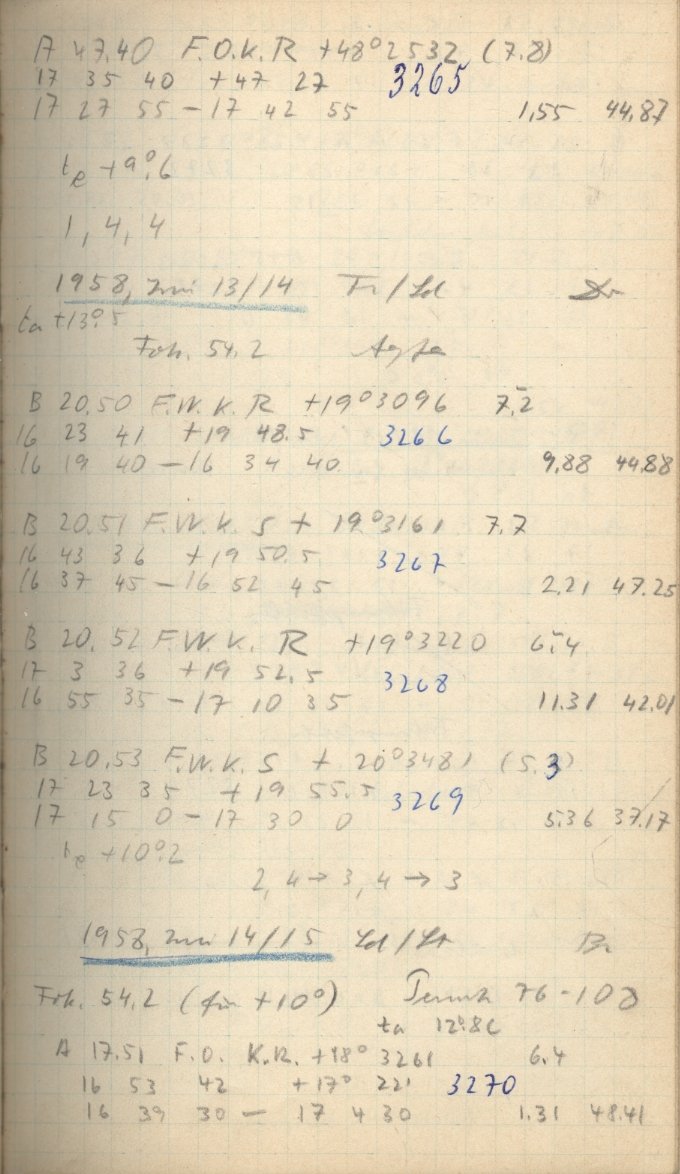 A 47.40 F.O.K.R +48°2532 (7.8)
17 35 40 +47 27 3265
17 27 55 - 17 42 55 1,55 44.87
te +9°.6
1, 4, 4
1958, Juni 13/14 Tr/Ld
ta +13°.5
Fok. 54.2 Agfa
B 20.50 F.W.K.R +19°3096 7.2
16 23 41 +19 48.5 3266
16 19 40 - 16 34 40 9.88 44.88
B 20.51 F.W.K.S + 19°3161 7.7
16 43 36 +19 50.5 3267
16 37 45 - 16 52 45 2.21 47.25
B 20.52 F.W.K. R +19°3220 6.4
17 3 36 +19 52.5 3268
16 55 35 - 17 10 35 11.31 42.01
B 20.53 F.W.K.S + 20°3481 (5.3)
17 23 35 +19 55.5 3269
17 15 0 - 17 30 0 5.36 37.17
te +10°.2
2, 4 → 3, 4 → 3
1958, Juni 14/15 Ld/Lt
Fok. 54.2 (für +10°) 76-108
ta 12°.8C
A 17.51 F.O. K.R. +18° 3261 6.4
16 53 42 +17° 221 3270
16 39 30 - 17 4 30 1.31 48.41